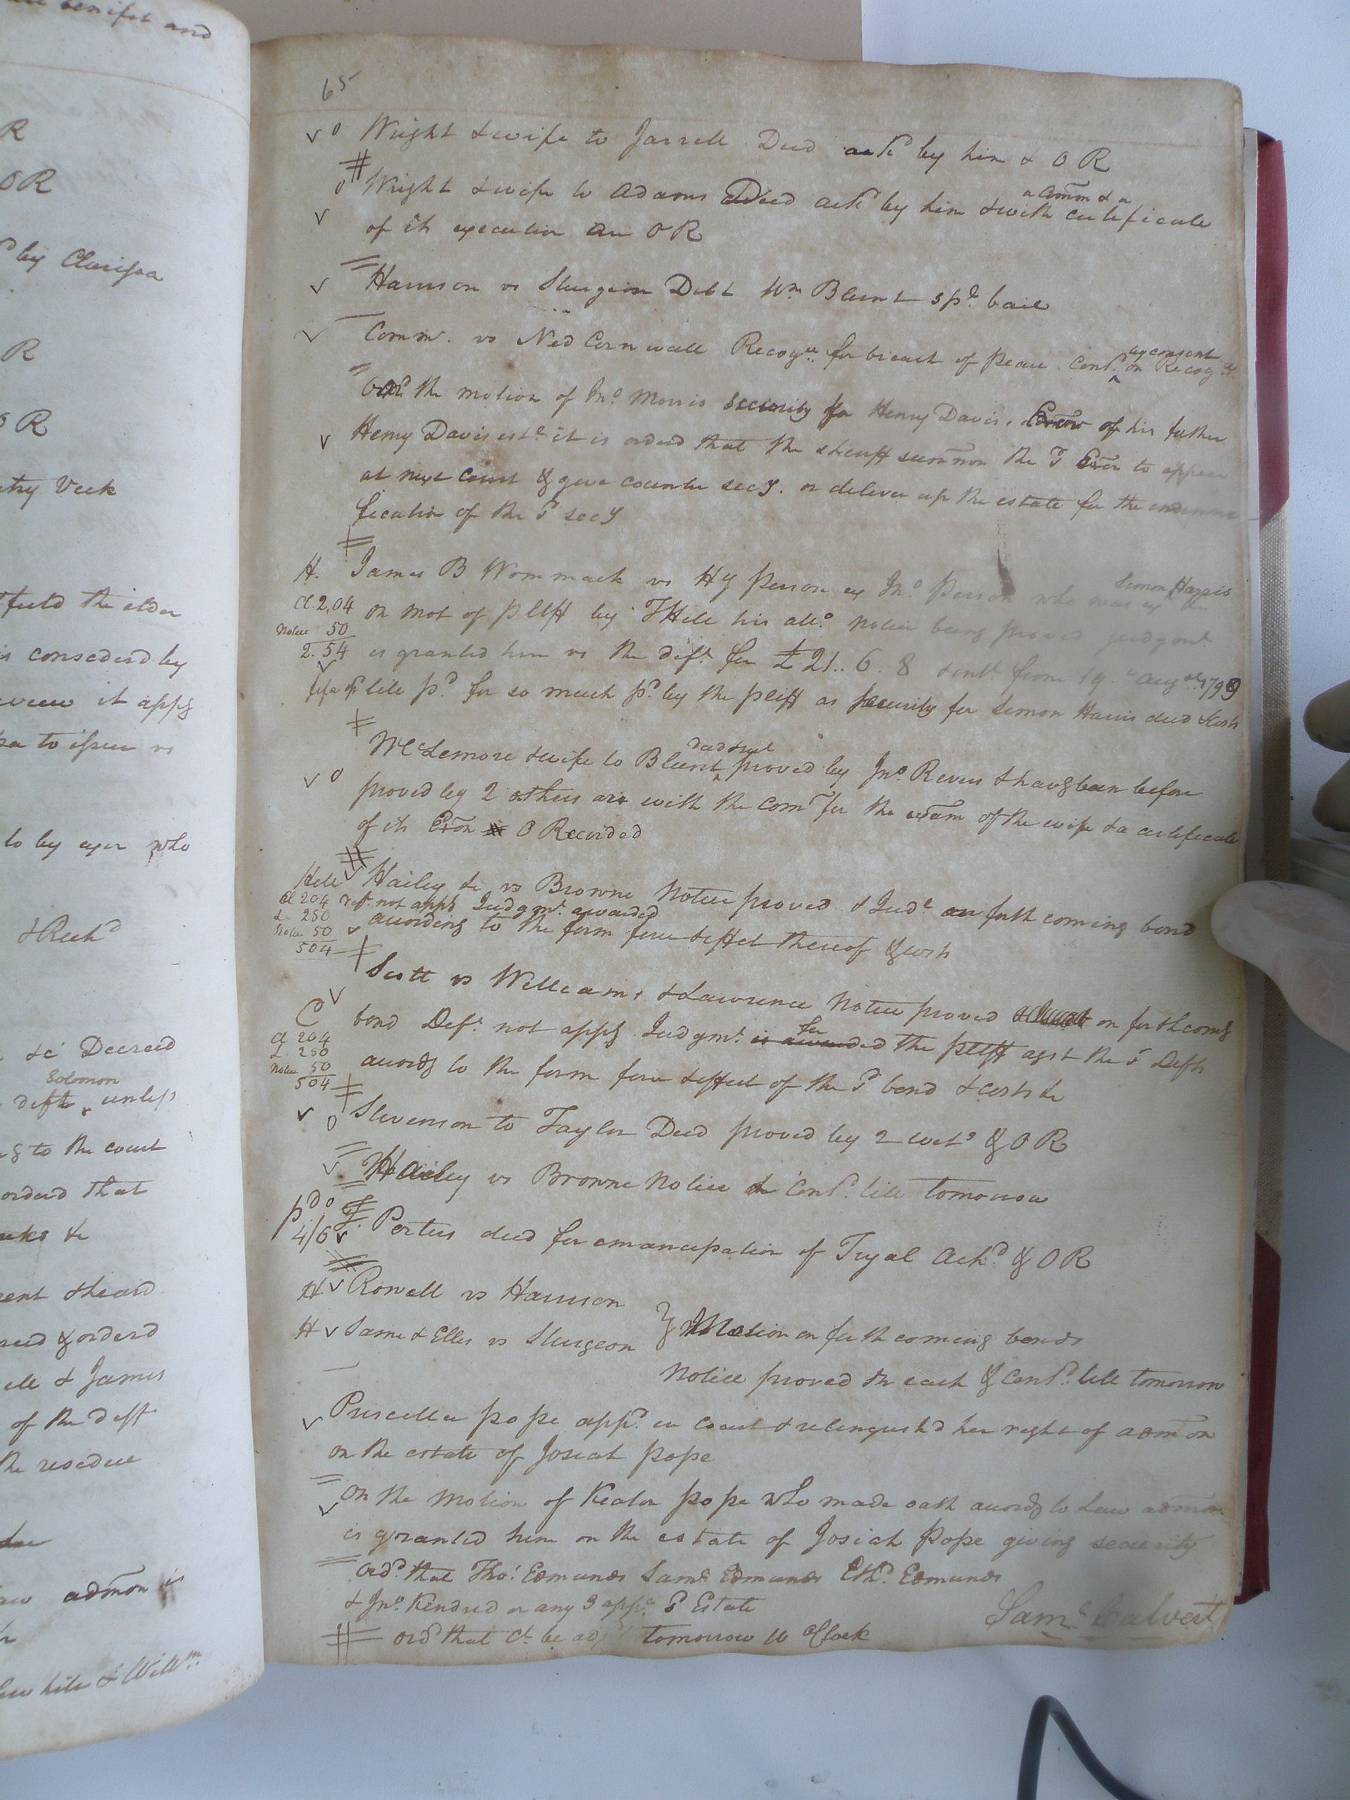 65
Wright & wife to Jarrell Deed ackd by him & O R
Wright & wife to Adams Deed ackd by him & with a Comm & a certificate
of its execution an O R
Harrison vs Sturgeon Debt Wm Blunt spl. bail
Comw. vs Ned Cornwall Recogce for breach of peace Contd by consent on Recogce
the motion of Jno Morris security for Henry Davis, Exor of his father
Henry Davis estt. it is orderd that the sheriff summon the sd Exor to appear
at next Court & give counter secy. or deliver up the estate for the indemni
fication of the sd secy
H. James B Wommack vs Hy Person ex Jno Person who was exr Simon Harris
Cl 2,04 on mot of pltff by J Hill his atto notice being proved judgmt
Notice 50 is granted him vs the deft for £ 21.. 6. 8 & intt from 19 Augst 1799
2.54
till pd for so much pd by the pltff as security for Simon Harris decd & costs
McLemore & wife to Blunt deed & rect proved by Jno Rives & havg been before
proved by 2 others are with the Comn for the exam of the wife & a certificate
of its Exon O Recorded
Hill Hailey &c vs Browne Notice proved & Judt on forth coming bond
Cl 204 Deft. not appg Judgmt. awarded
L. 250 accordg to the form force & effect thereof & costs
Notice 50
504
Scott vs Williams & Lawrence Notice proved on forthcomg
C bond Deft. not appg Judgmt. for the pltff agst the sd Defts
Cl 204
L. 250 accordg to the form force & effect of the sd bond & costs &c
Notice 50
504
Stevenson to Taylor Deed proved by 2 wits & O R
Hailey vs Browne Notice Contd. till tomorrow
pd
4/6 Porteus deed for emancipation of Tryal Ackd & O R
H Rowell vs Harrison
H Same & Ellis vs Sturgeon } Motion on forth coming bonds
Notice proved in each & Contd. till tomorrow
Priscilla pope appd. in Court & relinquishd her right of admon
on the estate of Josiah pope
On the motion of pope who made oath accordg to Law admon
is granted him on the estate of Josiah Pope giving security
Ordd that Thos: Edmunds Saml Edmunds Ethd. Edmunds
& Jno. Kindred or any 3 appr. sd Estate
ordd that Ct. be adjd tomorrow 10 oClock
Saml Calvert